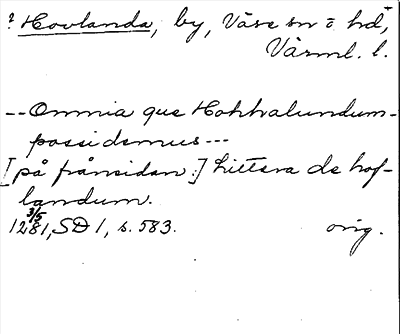 ? Hovlanda, by, Väse sn o hd,
Värml. l.
-- Omnia que Hohhalundum-
possidemus ---
[på frånsidan:] littera de hof-
landum.
3/5
1281, SD 1, s. 583. orig.